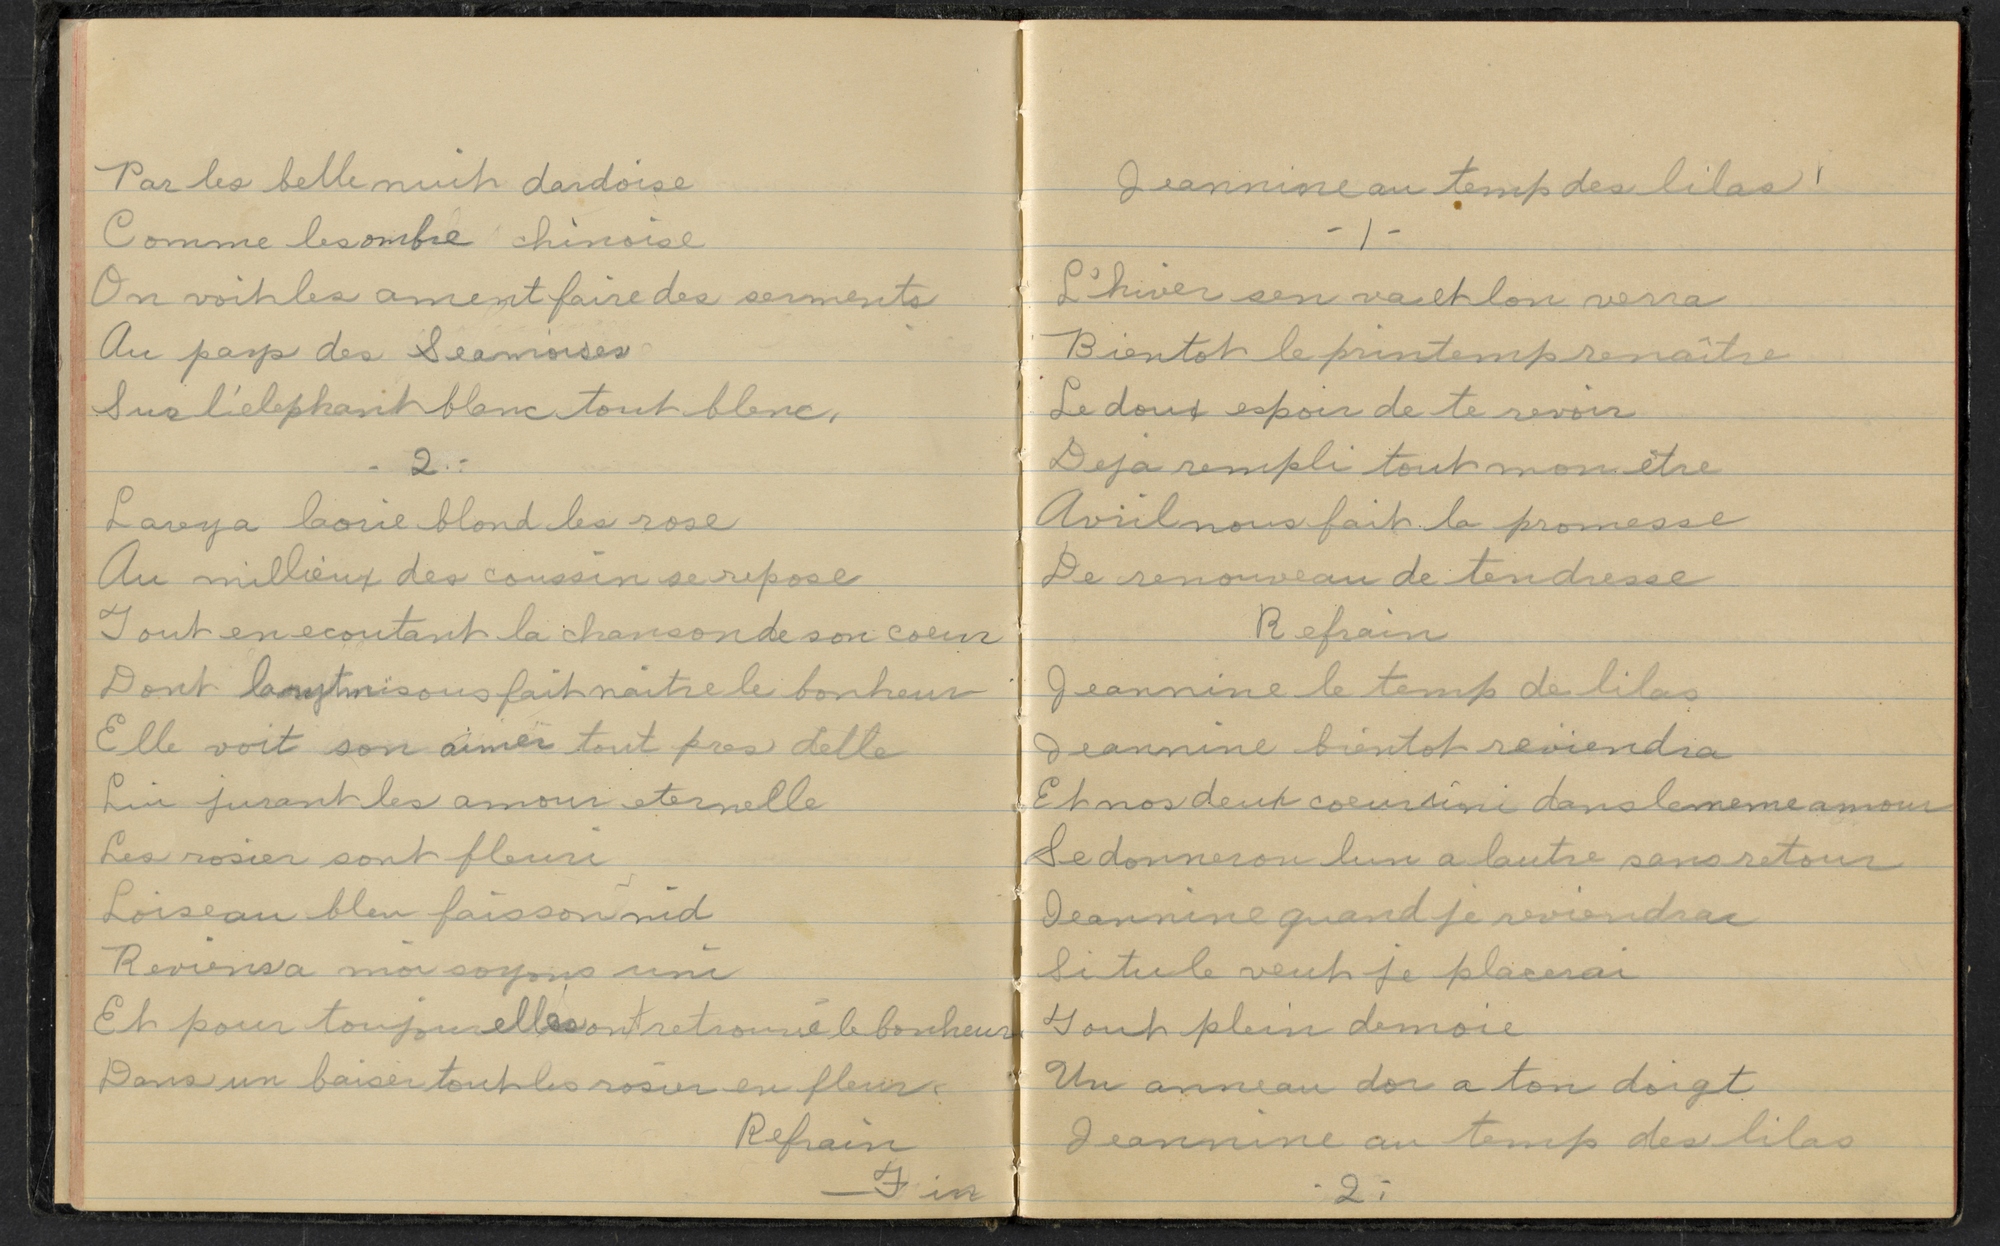 Par les belle nuit dardoise
Comme les ombre chinoise
On voit les ament faire des serments
Au pays des Seamoises
Sur l'elephant blanc tout blenc,
- 2 -
La orie blond les rose
Au millieux des coussin se repose
Tout en ecoutant la chanson de son coeur
Dont fait naitre le bonheur
Elle voit son aimér tout pres delle
Lui jurant les amour eternelle
Les rosier sont fleuri
Loiseau bleu fais son nid
Reviens a moi soyons uni
Et pour toujour elles ont retrouvé le bonheur
Dans un baiser tout les rosier en fleur.
Refrain
— Fin
Jeannine au temp des lilas !
- 1 -
L'hiver sen va et lon verra
Bientot le printemp renaître
Le doux espoir de te revoir
Deja rempli tout mon être
Avril nous fait la promesse
De renouveau de tendresse
Refrain
Jeannine le temp de lilas
Jeannine bientot reviendra
Et nos deux coeur uni dans le meme amour
Se donneron lun a lautre sans retour
Jeannine quand je reviendrai
Si tu le veut je placerai
Tout plein demoie
Un anneau dor a ton doigt
Jeannine au temp des lilas
- 2 -